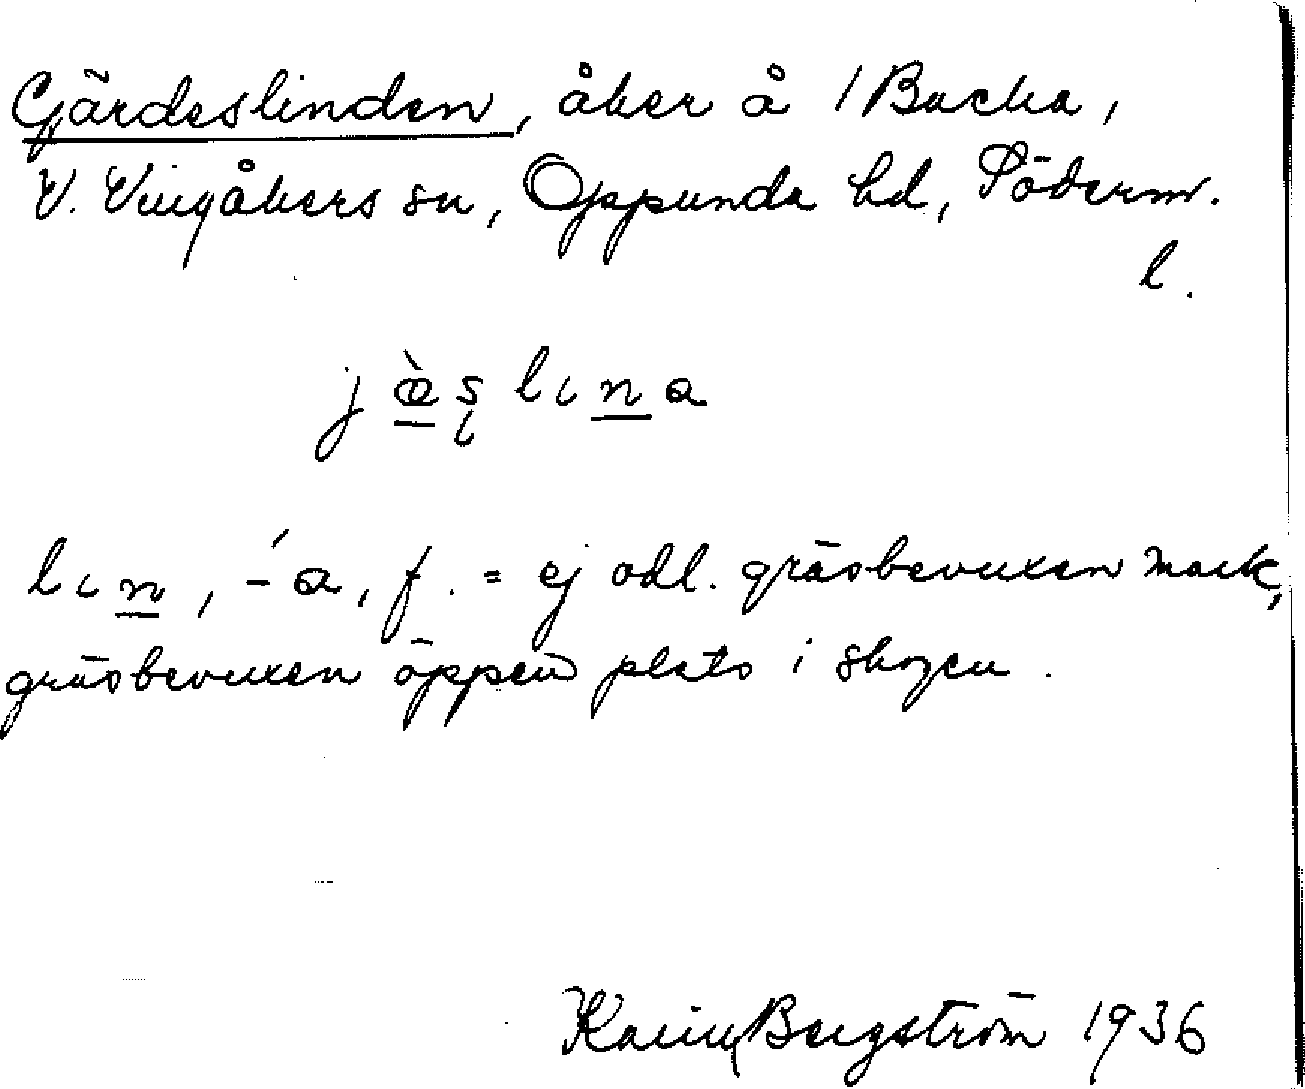 Gärdeslinden, åker å / Backa,
V. Vingåkers sn, Oppunda hd, Söderm.
l.
jæ̀ʂ lɩna
lɩn, -́a, f. = ej odl. gräsbevuxen mark,
gräsbevuxen öppen plats i skogen.
Karin Bergström 1936